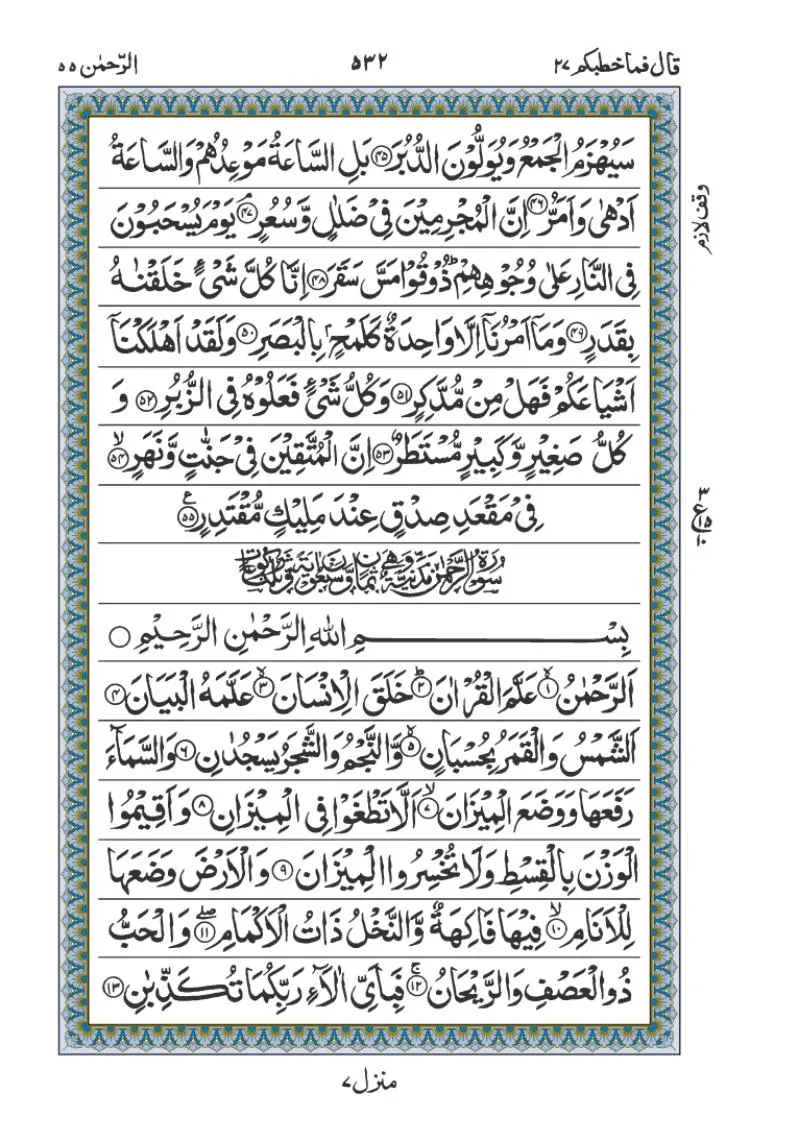 قال فما خطبكم ٢٧
٥٣٢
الرّحمٰن ٥٥
سَيُهْزَمُ الْجَمْعُ وَيُوَلُّوْنَ الدُّبُرَ ﴿۴۵﴾ بَلِ السَّاعَةُ مَوْعِدُهُمْ وَالسَّاعَةُ
اَدْهٰى وَاَمَرُّ ﴿۴۶﴾ اِنَّ الْمُجْرِمِيْنَ فِيْ ضَلٰلٍ وَّسُعُرٍ ﴿۴۷﴾ۘ يَوْمَ يُسْحَبُوْنَ
وقف لازم
فِى النَّارِ عَلٰى وُجُوْهِهِمْ ؕ ذُوْقُوْا مَسَّ سَقَرَ ﴿۴۸﴾ اِنَّا كُلَّ شَىْءٍ خَلَقْنٰهُ
بِقَدَرٍ ﴿۴۹﴾ وَمَاۤ اَمْرُنَاۤ اِلَّا وَاحِدَةٌ كَلَمْحٍۭ بِالْبَصَرِ ﴿۵۰﴾ وَلَقَدْ اَهْلَكْنَاۤ
اَشْيَاعَكُمْ فَهَلْ مِنْ مُّدَّكِرٍ ﴿۵۱﴾ وَكُلُّ شَىْءٍ فَعَلُوْهُ فِى الزُّبُرِ ﴿۵۲﴾ وَ
كُلُّ صَغِيْرٍ وَّكَبِيْرٍ مُّسْتَطَرٌ ﴿۵۳﴾ اِنَّ الْمُتَّقِيْنَ فِيْ جَنّٰتٍ وَّنَهَرٍ ﴿۵۴﴾ۙ
فِيْ مَقْعَدِ صِدْقٍ عِنْدَ مَلِيْكٍ مُّقْتَدِرٍ ﴿۵۵﴾
سُوْرَةُ الرَّحْمٰنِ مَدَنِيَّةٌ وَّهِيَ ثَمَانٌ وَّسَبْعُوْنَ اٰيَةً وَّثَلٰثُ رُكُوْعَاتٍ
بِسْمِ اللهِ الرَّحْمٰنِ الرَّحِيْمِ ○
اَلرَّحْمٰنُ ﴿۱﴾ۙ عَلَّمَ الْقُرْاٰنَ ﴿۲﴾ؕ خَلَقَ الْاِنْسَانَ ﴿۳﴾ۙ عَلَّمَهُ الْبَيَانَ ﴿۴﴾
اَلشَّمْسُ وَالْقَمَرُ بِحُسْبَانٍ ﴿۵﴾ۙ وَّالنَّجْمُ وَالشَّجَرُ يَسْجُدٰنِ ﴿۶﴾ وَالسَّمَآءَ
رَفَعَهَا وَوَضَعَ الْمِيْزَانَ ﴿۷﴾ۙ اَلَّا تَطْغَوْا فِى الْمِيْزَانِ ﴿۸﴾ وَاَقِيْمُوا
الْوَزْنَ بِالْقِسْطِ وَلَا تُخْسِرُوا الْمِيْزَانَ ﴿۹﴾ وَالْاَرْضَ وَضَعَهَا
لِلْاَنَامِ ﴿۱۰﴾ۙ فِيْهَا فَاكِهَةٌ وَّالنَّخْلُ ذَاتُ الْاَكْمَامِ ﴿۱۱﴾ۖ وَالْحَبُّ
ذُو الْعَصْفِ وَالرَّيْحَانُ ﴿۱۲﴾ۚ فَبِاَىِّ اٰلَآءِ رَبِّكُمَا تُكَذِّبٰنِ ﴿۱۳﴾
منزل ٧